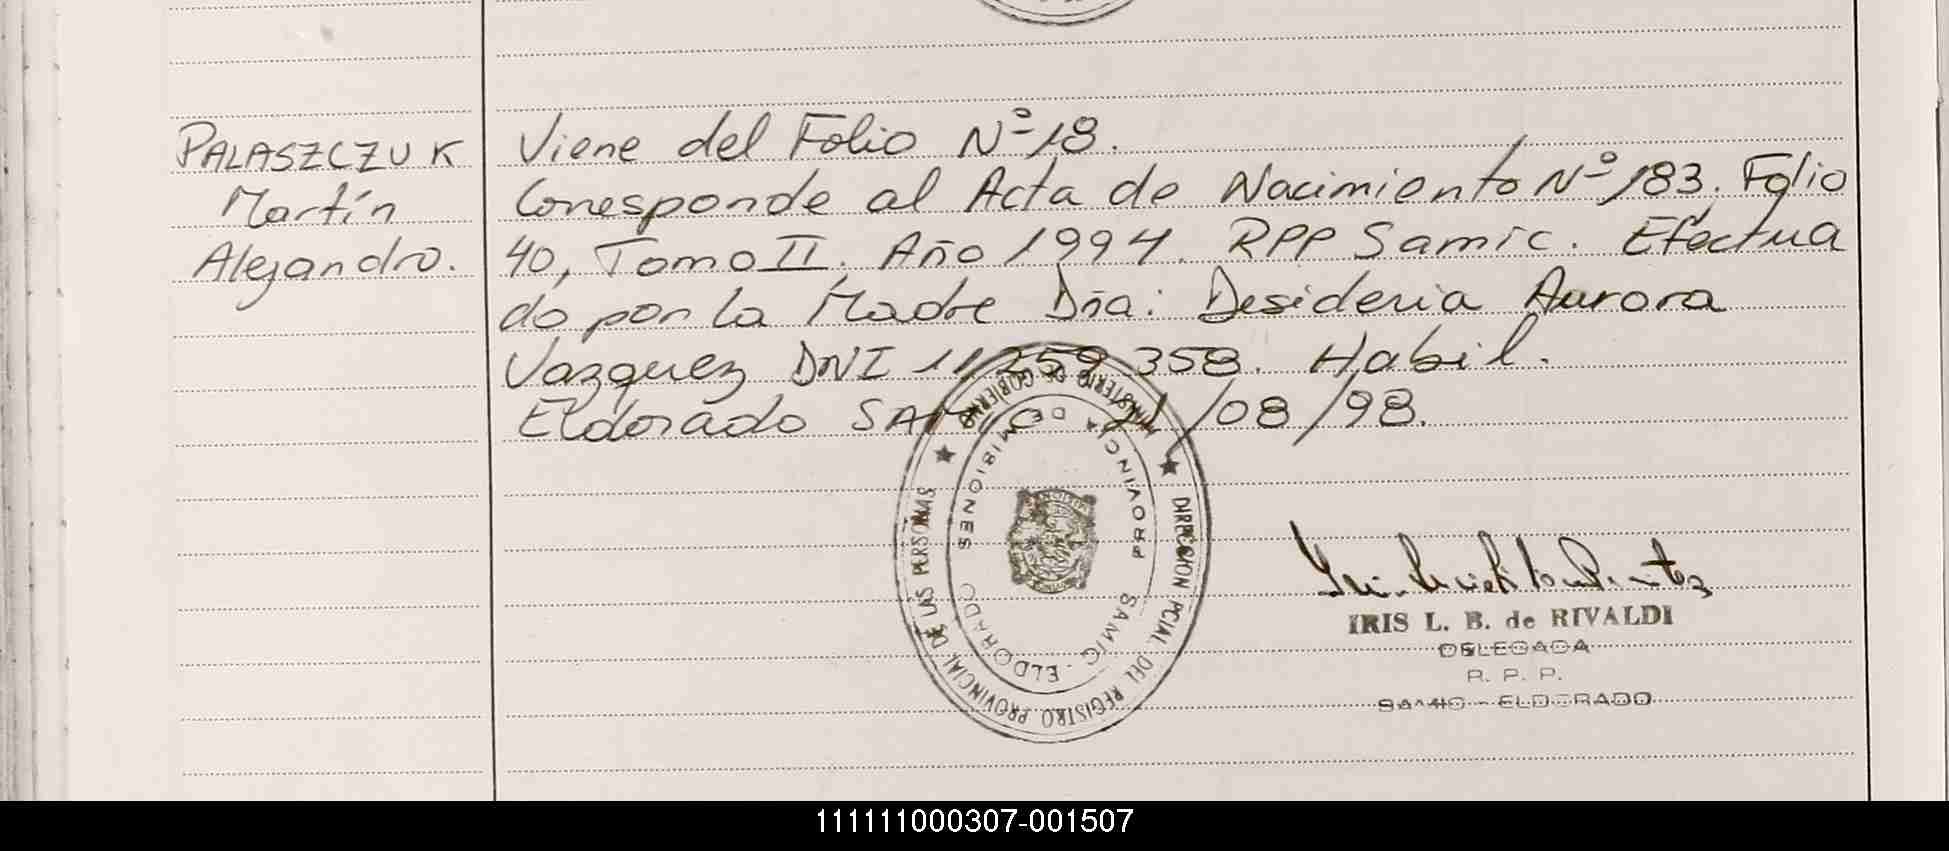 PALASZCZUK
Martín
Alejandro.
Viene del Folio Nº 18.
Corresponde al Acta de Nacimiento Nº 183. Folio
40, Tomo II. Año 1994. RPP Samic. Efectua
do por la Madre Dña: Desideria Aurora
Vazquez DNI 11.259.358. Habil.
Eldorado SAMIC 21/08/98.
DIRECCION PCIAL DEL REGISTRO PROVINCIAL DE LAS PERSONAS
MINISTERIO DE GOBIERNO
PROVINCIA DE MISIONES
SAMIC - ELDORADO
IRIS L. B. de RIVALDI
DELEGADA
R. P. P.
SAMIC - ELDORADO
111111000307-001507